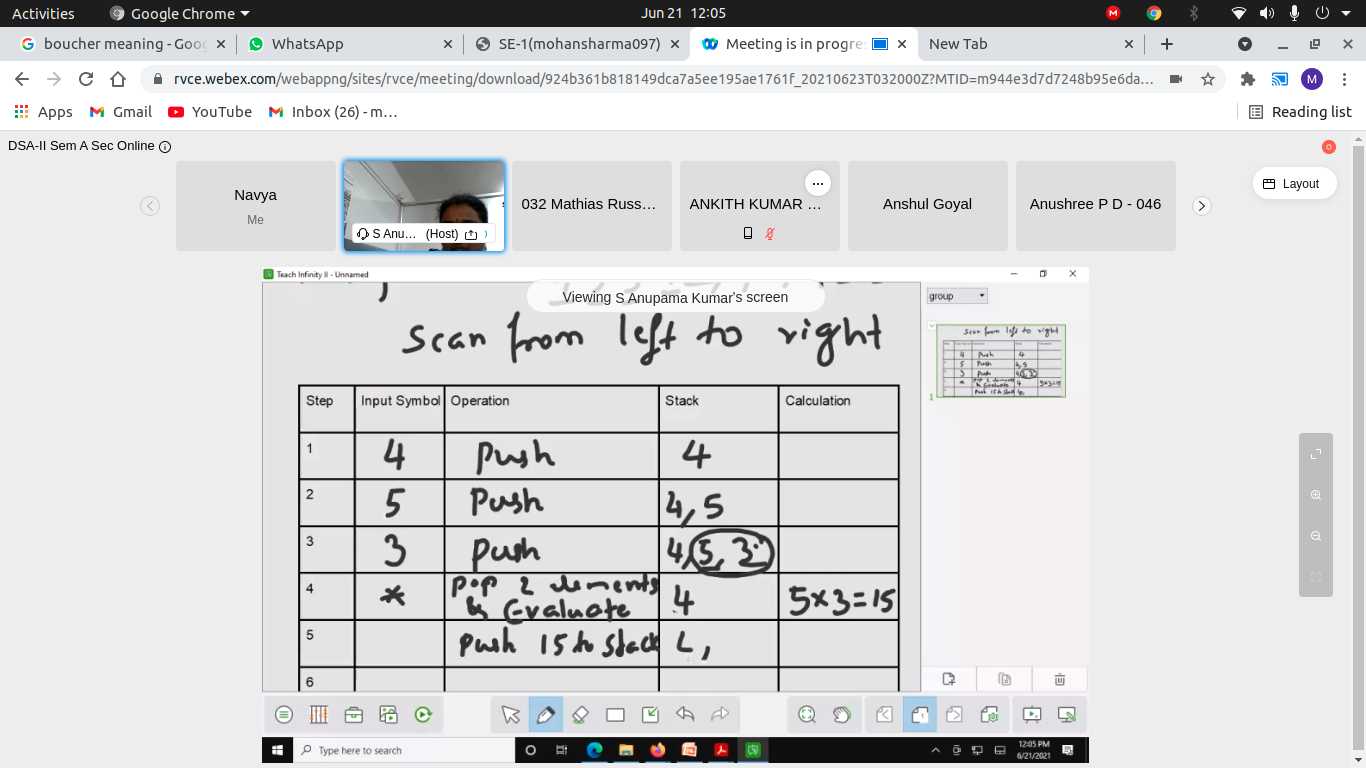 Activities
Google Chrome
Jun 21 12:05
boucher meaning - Goog
WhatsApp
SE-1(mohansharma097)
Meeting is in progres
New Tab
rvce.webex.com/webappng/sites/rvce/meeting/download/924b361b818149dca7a5ee195ae1761f_20210623T032000Z?MTID=m944e3d7d7248b95e6da…
M
Apps
Gmail
YouTube
Inbox (26) - m…
Reading list
DSA-II Sem A Sec Online
Navya
Me
S Anu… (Host)
032 Mathias Russ…
ANKITH KUMAR …
Anshul Goyal
Anushree P D - 046
Layout
Teach Infinity II - Unnamed
Viewing S Anupama Kumar's screen
group
scan from left to right
Step Input Symbol Operation Stack Calculation
1 4 Push 4
2 5 Push 4, 5
3 3 Push 4, 5, 3
4 * pop 2 elements & Evaluate 4 5×3=15
5 Push 15 to stack 4,
6
scan from left to right
4 Push 4
5 Push 4,5
3 Push 4,5,3
* pop 2 elements & Evaluate 4 5×3=15
Push 15 to stack 4,
1
Type here to search
12:05 PM
6/21/2021